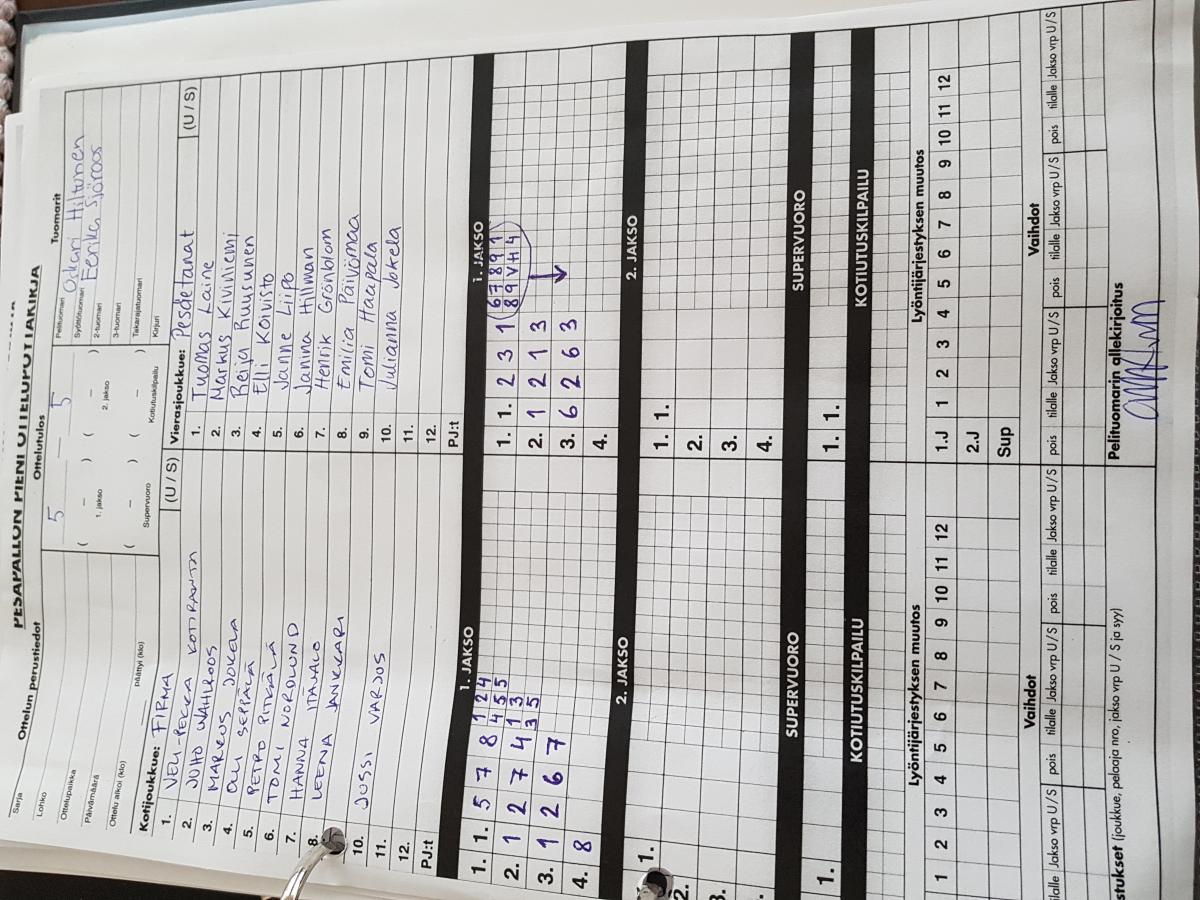 PESÄPALLON PIENI OTTELUPÖYTÄKIRJA
Sarja
Ottelun perustiedot
Ottelutulos
Tuomarit
Lohko
Ottelupaikka
Päivämäärä
Ottelu alkoi (klo)
päättyi (klo)
5 — 5
( – ) ( – )
1. jakso 2. jakso
( – ) ( – )
Supervuoro Kotiutuskilpailu
Pelituomari Oskari Hiltunen
Syöttötuomari Eerika Sjöroos
2-tuomari
3-tuomari
Takarajatuomari
Kirjuri
Kotijoukkue: FIRMA (U / S)
1. VELI-PEKKA KOTIRANTA
2. JUHO WAHLROOS
3. MARKUS JOKELA
4. OLLI SEPPÄLÄ
5. PETRO PITKÄLÄ
6. TOMI NORDLUND
7. HANNA ITÄJALO
8. LEENA JANKKARI
10. JUSSI VARJOS
11.
12.
PJ:t
Vierasjoukkue: Pesdetanat (U / S)
1. Tuomas Laine
2. Markus Kiviniemi
3. Reija Ruusunen
4. Elli Koivisto
5. Janne Liipo
6. Janina Hilman
7. Henrik Grönblom
8. Emilia Päivömaa
9. Tomi Haapala
10. Julianna Jokela
11.
12.
PJ:t
1. JAKSO
1. 1. 5 7 8 1 2 4
4 5 5
2. 1 2 7 4 1 3
3 5
3. 1 2 6 7
4. 8
1. JAKSO
1. 1. 2 3 1 6 7 8 9 1
8 9 V H 4
2. 1 2 1 3
3. 6 2 6 3
4.
2. JAKSO
1.
2.
3.
2. JAKSO
1. 1.
2.
3.
4.
SUPERVUORO
1.
SUPERVUORO
1. 1.
KOTIUTUSKILPAILU
KOTIUTUSKILPAILU
Lyöntijärjestyksen muutos
1 2 3 4 5 6 7 8 9 10 11 12
Lyöntijärjestyksen muutos
1.J 1 2 3 4 5 6 7 8 9 10 11 12
2.J
Sup
Vaihdot
tilalle Jakso vrp U / S pois tilalle Jakso vrp U / S pois tilalle Jakso vrp U / S
Vaihdot
pois tilalle Jakso vrp U / S pois tilalle Jakso vrp U / S pois tilalle Jakso vrp U / S
stukset (joukkue, pelaaja nro, jakso vrp U / S ja syy)
Pelituomarin allekirjoitus